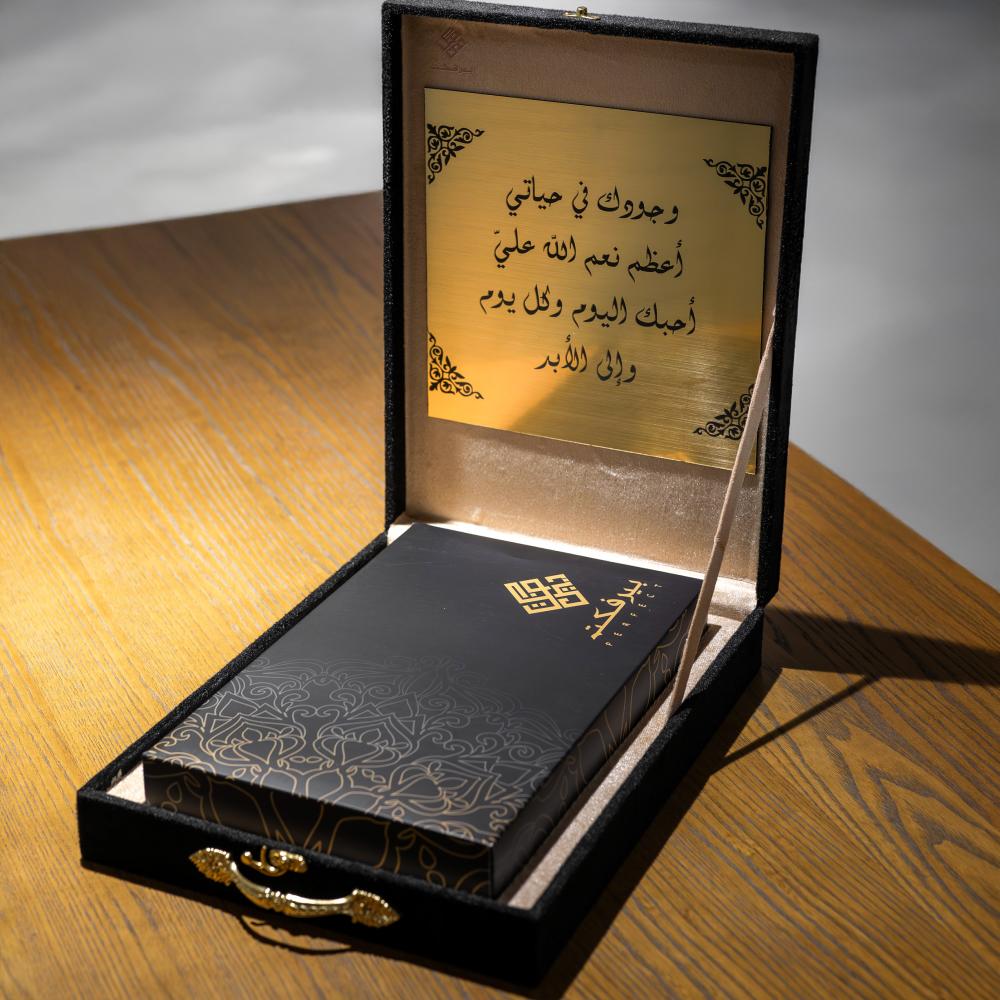 بيرفكت
وجودك في حياتي
أعظم نعم الله عليّ
أحبك اليوم وكل يوم
وإلى الأبد
بيرفكت
PERFECT